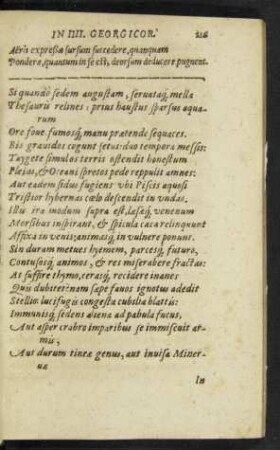 IN IIII. GEORGICOR.
Aëris expressa sursum succedere, quanquam
Pondera, quantum in se est, deorsum deducere pugnent.
Si quando sedem augustam, seruataq́; mella
Thesauris relines: prius haustus sparsus aqua-
rum
Ore foue, fumosq́; manu prætende sequaces.
Bis grauidos cogunt fetus: duo tempora messis:
Taygete simulos terris ostendit honestum
Pleias, & Oceani spretos pede reppulit amnes:
Aut eadem sidus fugiens vbi Piscis aquosi
Tristior hybernas cælo descendit in vndas.
Illis ira modum supra est, læsæq́; venenum
Morsibus inspirant, & spicula cæca relinquunt
Affixa in venis: animasq́; in vulnere ponunt.
Sin duram metues hyemem, parcesq́; futuro,
Contusosq́; animos, & res miserabere fractas:
At suffire thymo, cerasq́; recidere inanes
Quis dubitet? nam sæpe fauos ignotus adedit
Stellio: lucifugis congesta cubilia blattis:
Immunisq́; sedens aliena ad pabula fucus,
Aut asper crabro imparibus se immiscuit ar-
mis,
Aut durum tineæ genus, aut inuisa Miner-
uæ
In